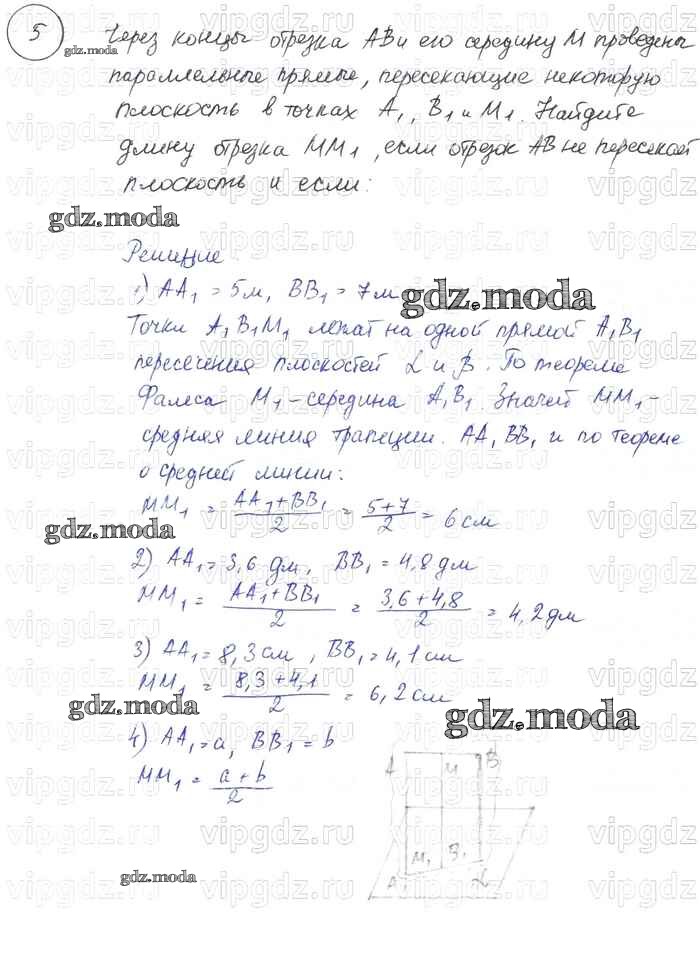 5
Через концы отрезка АВ и его середину М проведены
параллельные прямые, пересекающие некоторую
плоскость в точках A₁, B₁ и M₁. Найдите
длину отрезка MM₁, если отрезок АВ не пересекает
плоскость и если:
Решение
1) AA₁ = 5м, BB₁ = 7м
Точки A₁B₁M₁ лежат на одной прямой A₁B₁
пересечения плоскостей α и β. По теореме
Фалеса M₁ - середина A₁B₁. Значет MM₁ -
средняя линия трапеции. AA₁BB₁ и по теореме
о средней линии:
MM₁ = (AA₁+BB₁)/2 = (5+7)/2 = 6 см
2) AA₁ = 3,6 дм, BB₁ = 4,8 дм
MM₁ = (AA₁+BB₁)/2 = (3,6+4,8)/2 = 4,2 дм
3) AA₁ = 8,3 см, BB₁ = 4,1 см
MM₁ = (8,3+4,1)/2 = 6,2 см
4) AA₁ = a, BB₁ = b
MM₁ = (a+b)/2
A M B
M₁ B₁
A₁ α
gdz.moda
gdz.moda
gdz.moda
gdz.moda
gdz.moda
gdz.moda
gdz.moda
vipgdz.ru